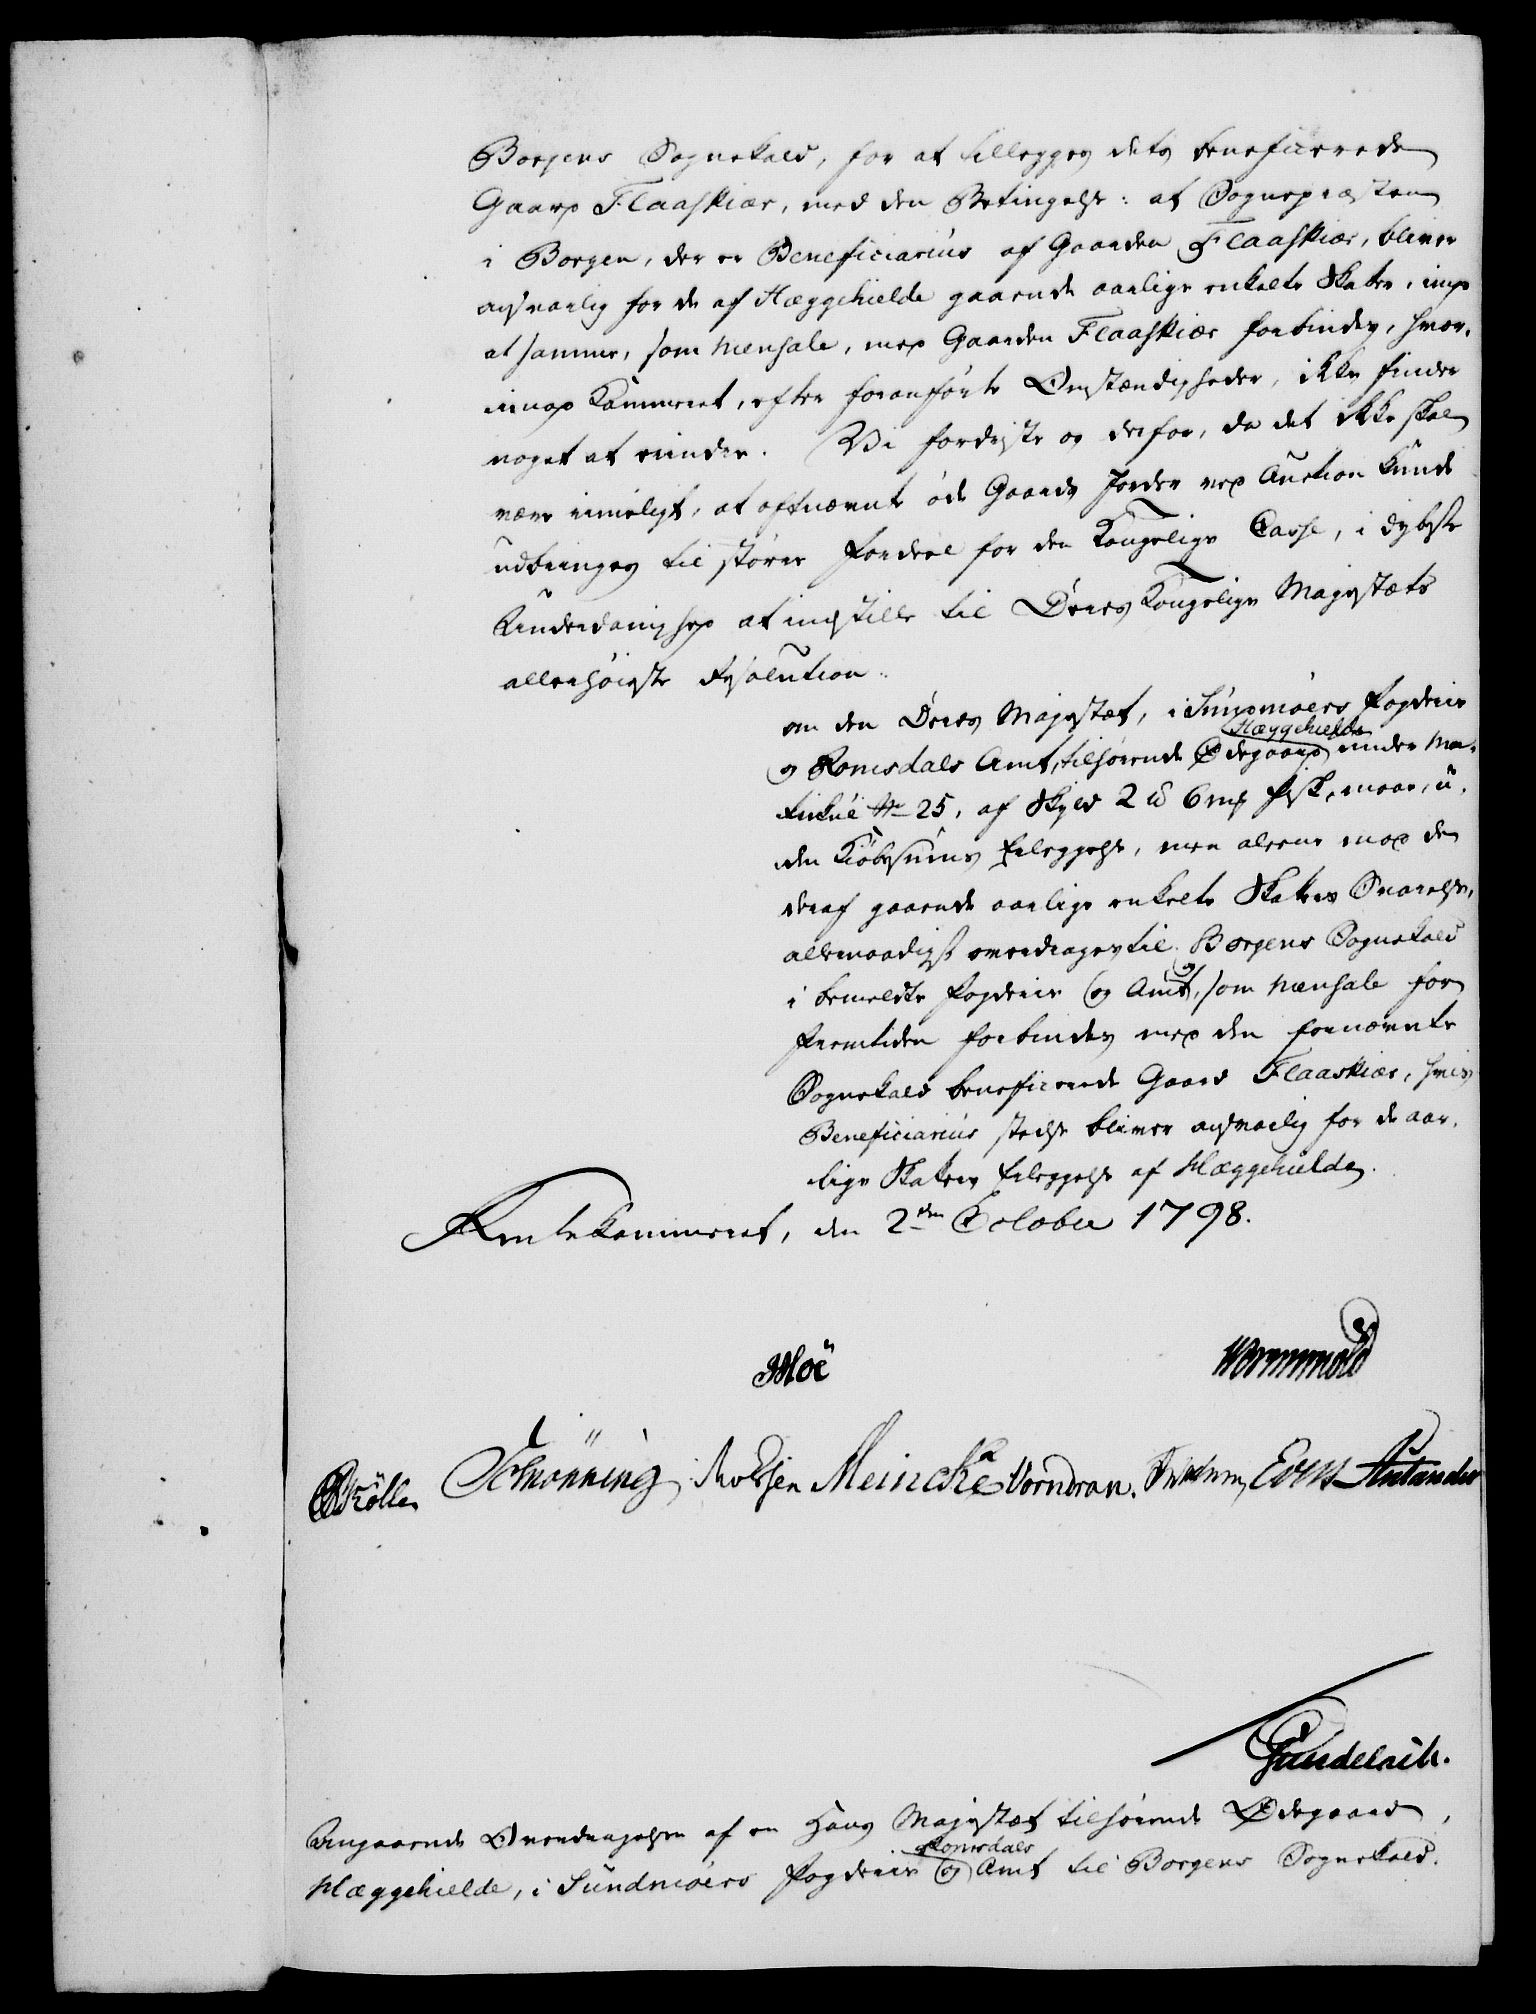 Borgens Sognekald, for at tillegges dets beneficerede
Gaard Flaaskiær, med den Betingelse: at Sognepræsten
i Borgen, der er Beneficiarius af Gaarden Flaaskiær, bliver
ansvarlig for de af Hæggehielde gaaende aarlige enkelte Skatter, imod
at samme, som mensale, med Gaarden Flaaskiær forbindes, hvor-
imod Kammeret, efter foranførte Omstændigheder, ikke finder
noget at erindre. Vi fordriste os derfor, da det ikke skal
være rimeligt, at oftnævnte øde Gaards Jorder ved Auction kunde
udbringes til større Fordeel for den Kongelige Casse, i dybeste
Underdanighed at indstille til Deres Kongelige Majestæts
allerhøieste Resolution:
om den Deres Majestæt, i Sundmøers Fogderie
og Romsdals Amt, tilhørende Ødegaard Hæggehielde under Ma-
trikul № 25, af Skyld 2 ℔ 6 mß Fisk, maae, u-
den Kiøbesums Erleggelse, men alene mod de
deraf gaaende aarlige enkelte Skatters Svarelse,
allernaadigst overdrages til Borgens Sognekald
i bemeldte Fogderie og Amt, og som mensale for
Fremtiden forbindes med den fornævnte
Sognekald beneficerede Gaard Flaaskiær, hvis
Beneficiarius stedse bliver ansvarlig for de aar-
lige Skatters Erleggelse af Hæggehielde.
Rentekammeret, den 2den October 1798.
Moe Wormskiold
Schønning Meincke Vorndran.
Angaaende Overdragelsen af en Hans Majestæt tilhørende Ødegaard,
Hæggehielde, i Sundmøers Fogderie og Romsdals Amt til Borgens Sognekald.